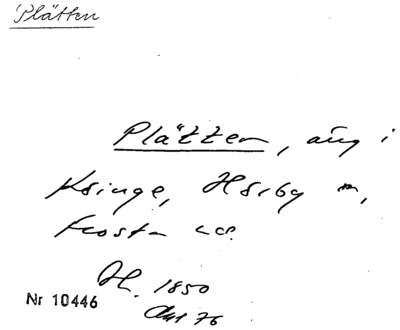 Plätten
Plätten, äng i
Ksinge, Hörby sn,
Frosta hd.
H. 1850
Nr 10446